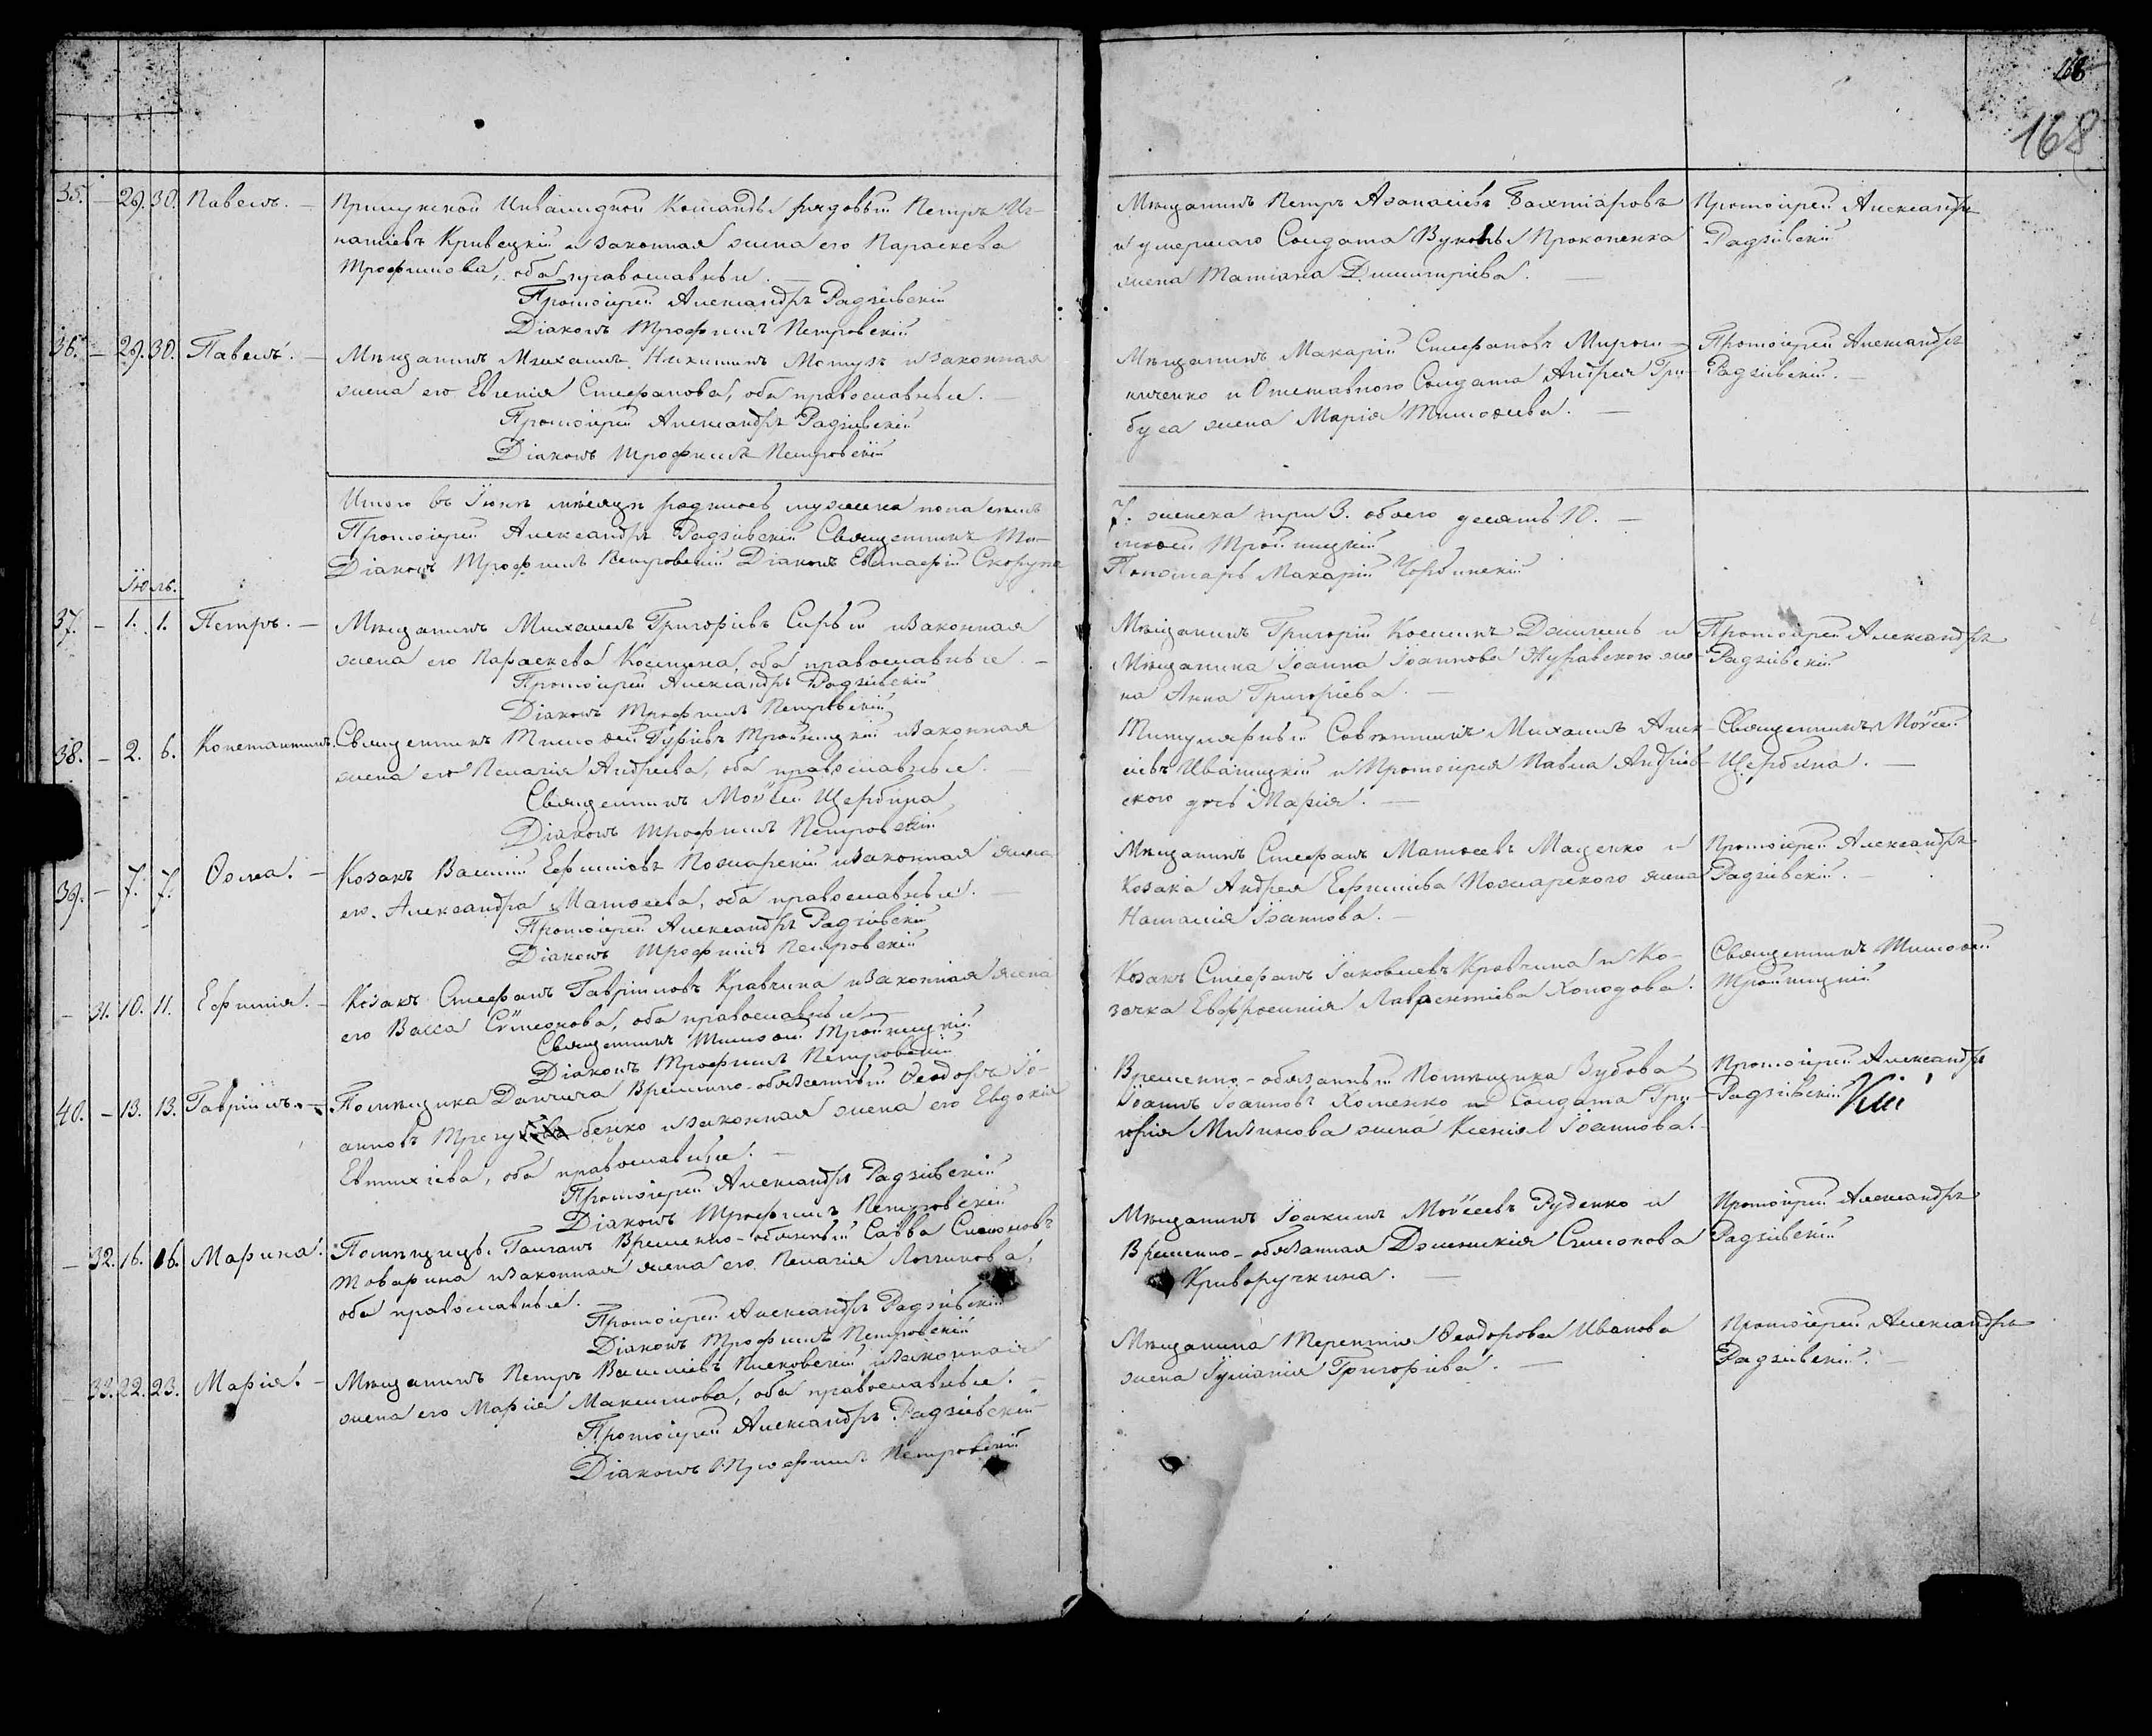 168
168
35. — 29. 30. Павелъ. — Прилукской Инвалидной Команды рядовый Петръ Иг-
натіевъ Кривецкій и законная жена его Параскева
Трофимова, оба православные. —
Протоіерей Александръ Радзіевскій
Діаконъ Трофимъ Петровскій
Мѣщанинъ Петръ Аѳанасіевъ Бахтіаровъ
и умершаго Солдата Вуколы Прокопенка
жена Татіана Димитріева. —
Протоіерей Александръ
Радзіевскій
36. — 29. 30. Павелъ. — Мѣщанинъ Михаилъ Никитинъ Мотузъ и законная
жена его Евгенія Стефанова, оба православные. —
Протоіерей Александръ Радзіевскій
Діаконъ Трофимъ Петровскій
Мѣщанинъ Макарій Стефановъ Мирош-
ниченко и Отставного Солдата Андрея Гри-
буса жена Марія Тимоѳеева. —
Протоіерей Александръ
Радзіевскій. —
Итого въ Іюнѣ мѣсяцѣ родилось мужеска пола семь
Протоіерей Александръ Радзіевскій Священникъ Ти-
Діаконъ Трофимъ Петровскій Діаконъ Евстафій Скорупа
7. женска три 3. обоего десять 10. —
моѳей Тройницкій
Пономарь Макарій
Іюль.
37. — 1. 1. Петръ. — Мѣщанинъ Михаилъ Григоріевъ Сирый и законная
жена его Параскева Космина, оба православные. —
Протоіерей Александръ Радзіевскій
Діаконъ Трофимъ Петровскій
Мѣщанинъ Григорій Косминъ и
Мѣщанина Іоанна Іоаннова Журавского же-
на Анна Григоріева. —
Протоіерей Александръ
Радзіевскій
38. — 2. 6. Константинъ. Священникъ Тимоѳей Гуріевъ Тройницкій и законная
жена его Пелагія Андреева, оба православные. —
Священникъ Моѵсей Щербина
Діаконъ Трофимъ Петровскій
Титулярный Совѣтникъ Михаилъ Алек-
сѣевъ Иваницкій и Протоіерея Павла Андріев-
ского дочь Марія. —
Священникъ Моѵсей
Щербина. —
39. — 7. 7. Ѳома. — Козакъ Василій Ефимовъ Пожарскій и законная жена
его Александра Матѳеева, оба православные. —
Протоіерей Александръ Радзіевскій
Діаконъ Трофимъ Петровскій
Мѣщанинъ Стефанъ Матѳеевъ Маценко и
Козака Андрея Ефимова Пожарского жена
Наталія Іоаннова. —
Протоіерей Александръ
Радзіевскій. —
— 31. 10. 11. Ефимія. — Козакъ Стефанъ Гавріиловъ Кравчина и законная жена
его Васса Сѵмеонова, оба православные —
Священникъ Тимоѳей Тройницкій
Діаконъ Трофимъ Петровскій
Козакъ Стефанъ Іаковлевъ Кравчина и Ко-
зачка Евфросинія Лаврентіева Холодова.
Священникъ Тимоѳей
Тройницкій
40. — 13. 13. Гавріилъ. — Помѣщика Данича Временно-обязанный Ѳеодоръ Іо-
анновъ Трегубенко и законная жена его Евдокія
Евтихіева, оба православные. —
Протоіерей Александръ Радзіевскій
Діаконъ Трофимъ Петровскій
Временно-обязанный Помѣщика Зубова
Іоаннъ Іоанновъ Хоменко и Солдата Гри-
горія жена Ксенія Іоаннова.
Протоіерей Александръ
Радзіевскій
— 32. 16. 16. Марина. Помѣщицы Временно-обязанный Савва Симоновъ
Товарина и законная жена его Пелагія Логинова,
оба православные.
Протоіерей Александръ Радзіевскій
Діаконъ Трофимъ Петровскій
Мѣщанинъ Іоакимъ Моѵсеевъ Руденко и
Временно-обязанная Домникія Симонова
Криворучкина. —
Протоіерей Александръ
Радзіевскій
— 33. 22. 23. Марія. — Мѣщанинъ Петръ Василіевъ и законная
жена его Марія Максимова, оба православные. —
Протоіерей Александръ Радзіевскій
Діаконъ Трофимъ Петровскій
Мѣщанина Терентія Ѳеодорова Иванова
жена Іуліанія Григоріева. —
Протоіерей Александръ
Радзіевскій.